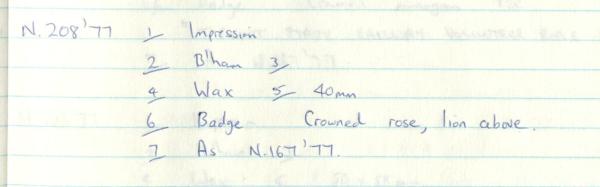 N.208'77 1 Impression
2 B'ham 3
4 Wax 5 40mm
6 Badge Crowned rose, lion above.
7 As N.167'77.